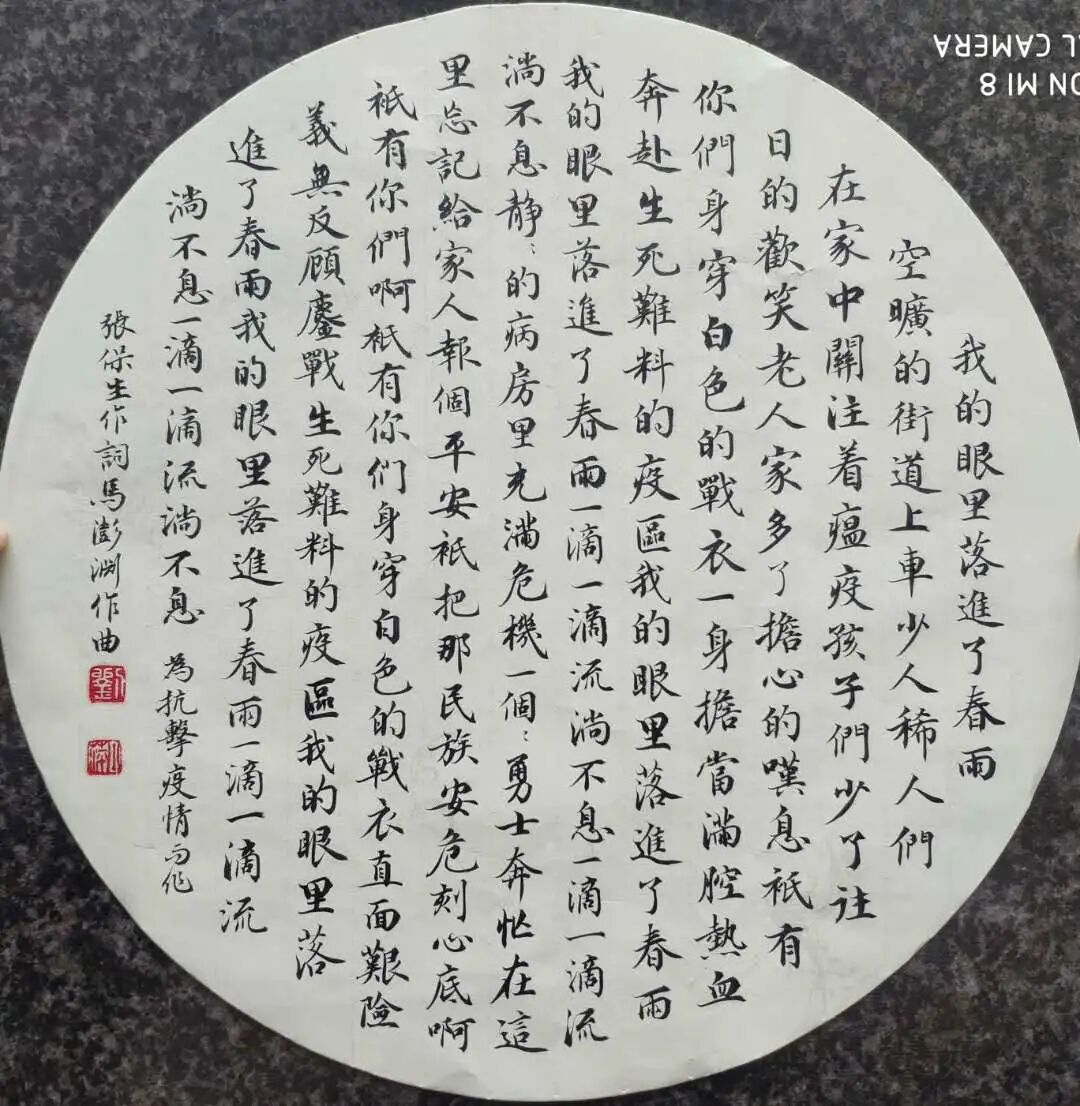 我的眼里落進了春雨
空曠的街道上車少人稀人們
在家中關注着瘟疫孩子們少了往
日的歡笑老人家多了擔心的嘆息祇有
你們身穿白色的戰衣一身擔當滿腔熱血
奔赴生死難料的疫區我的眼里落進了春雨
我的眼里落進了春雨一滴一滴流淌不息一滴一滴流
淌不息静〻的病房里充滿危機一個〻勇士奔忙在這
里忘記給家人報個平安祇把那民族安危刻心底啊
祇有你們啊祇有你们身穿白色的戰衣直面艱險
義無反顧鏖戰生死難料的疫區我的眼里落
進了春雨我的眼里落進了春雨一滴一滴流
淌不息一滴一滴流淌不息 為抗擊疫情而作
張保生作詞馬澎渊作曲
劉
ON MI 8
L CAMERA